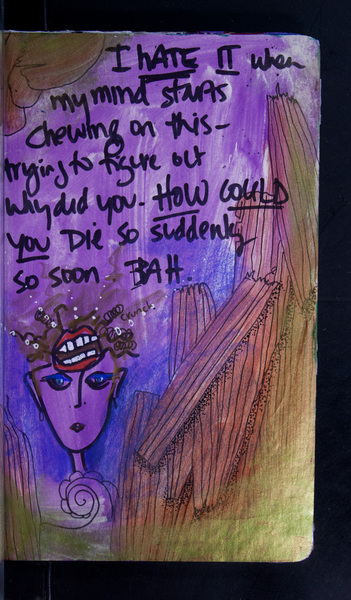 I HATE IT when
my mind starts
chewing on this -
trying to figure out
why did you - HOW COULD
YOU DIE so suddenly
so soon BAH.
crunch